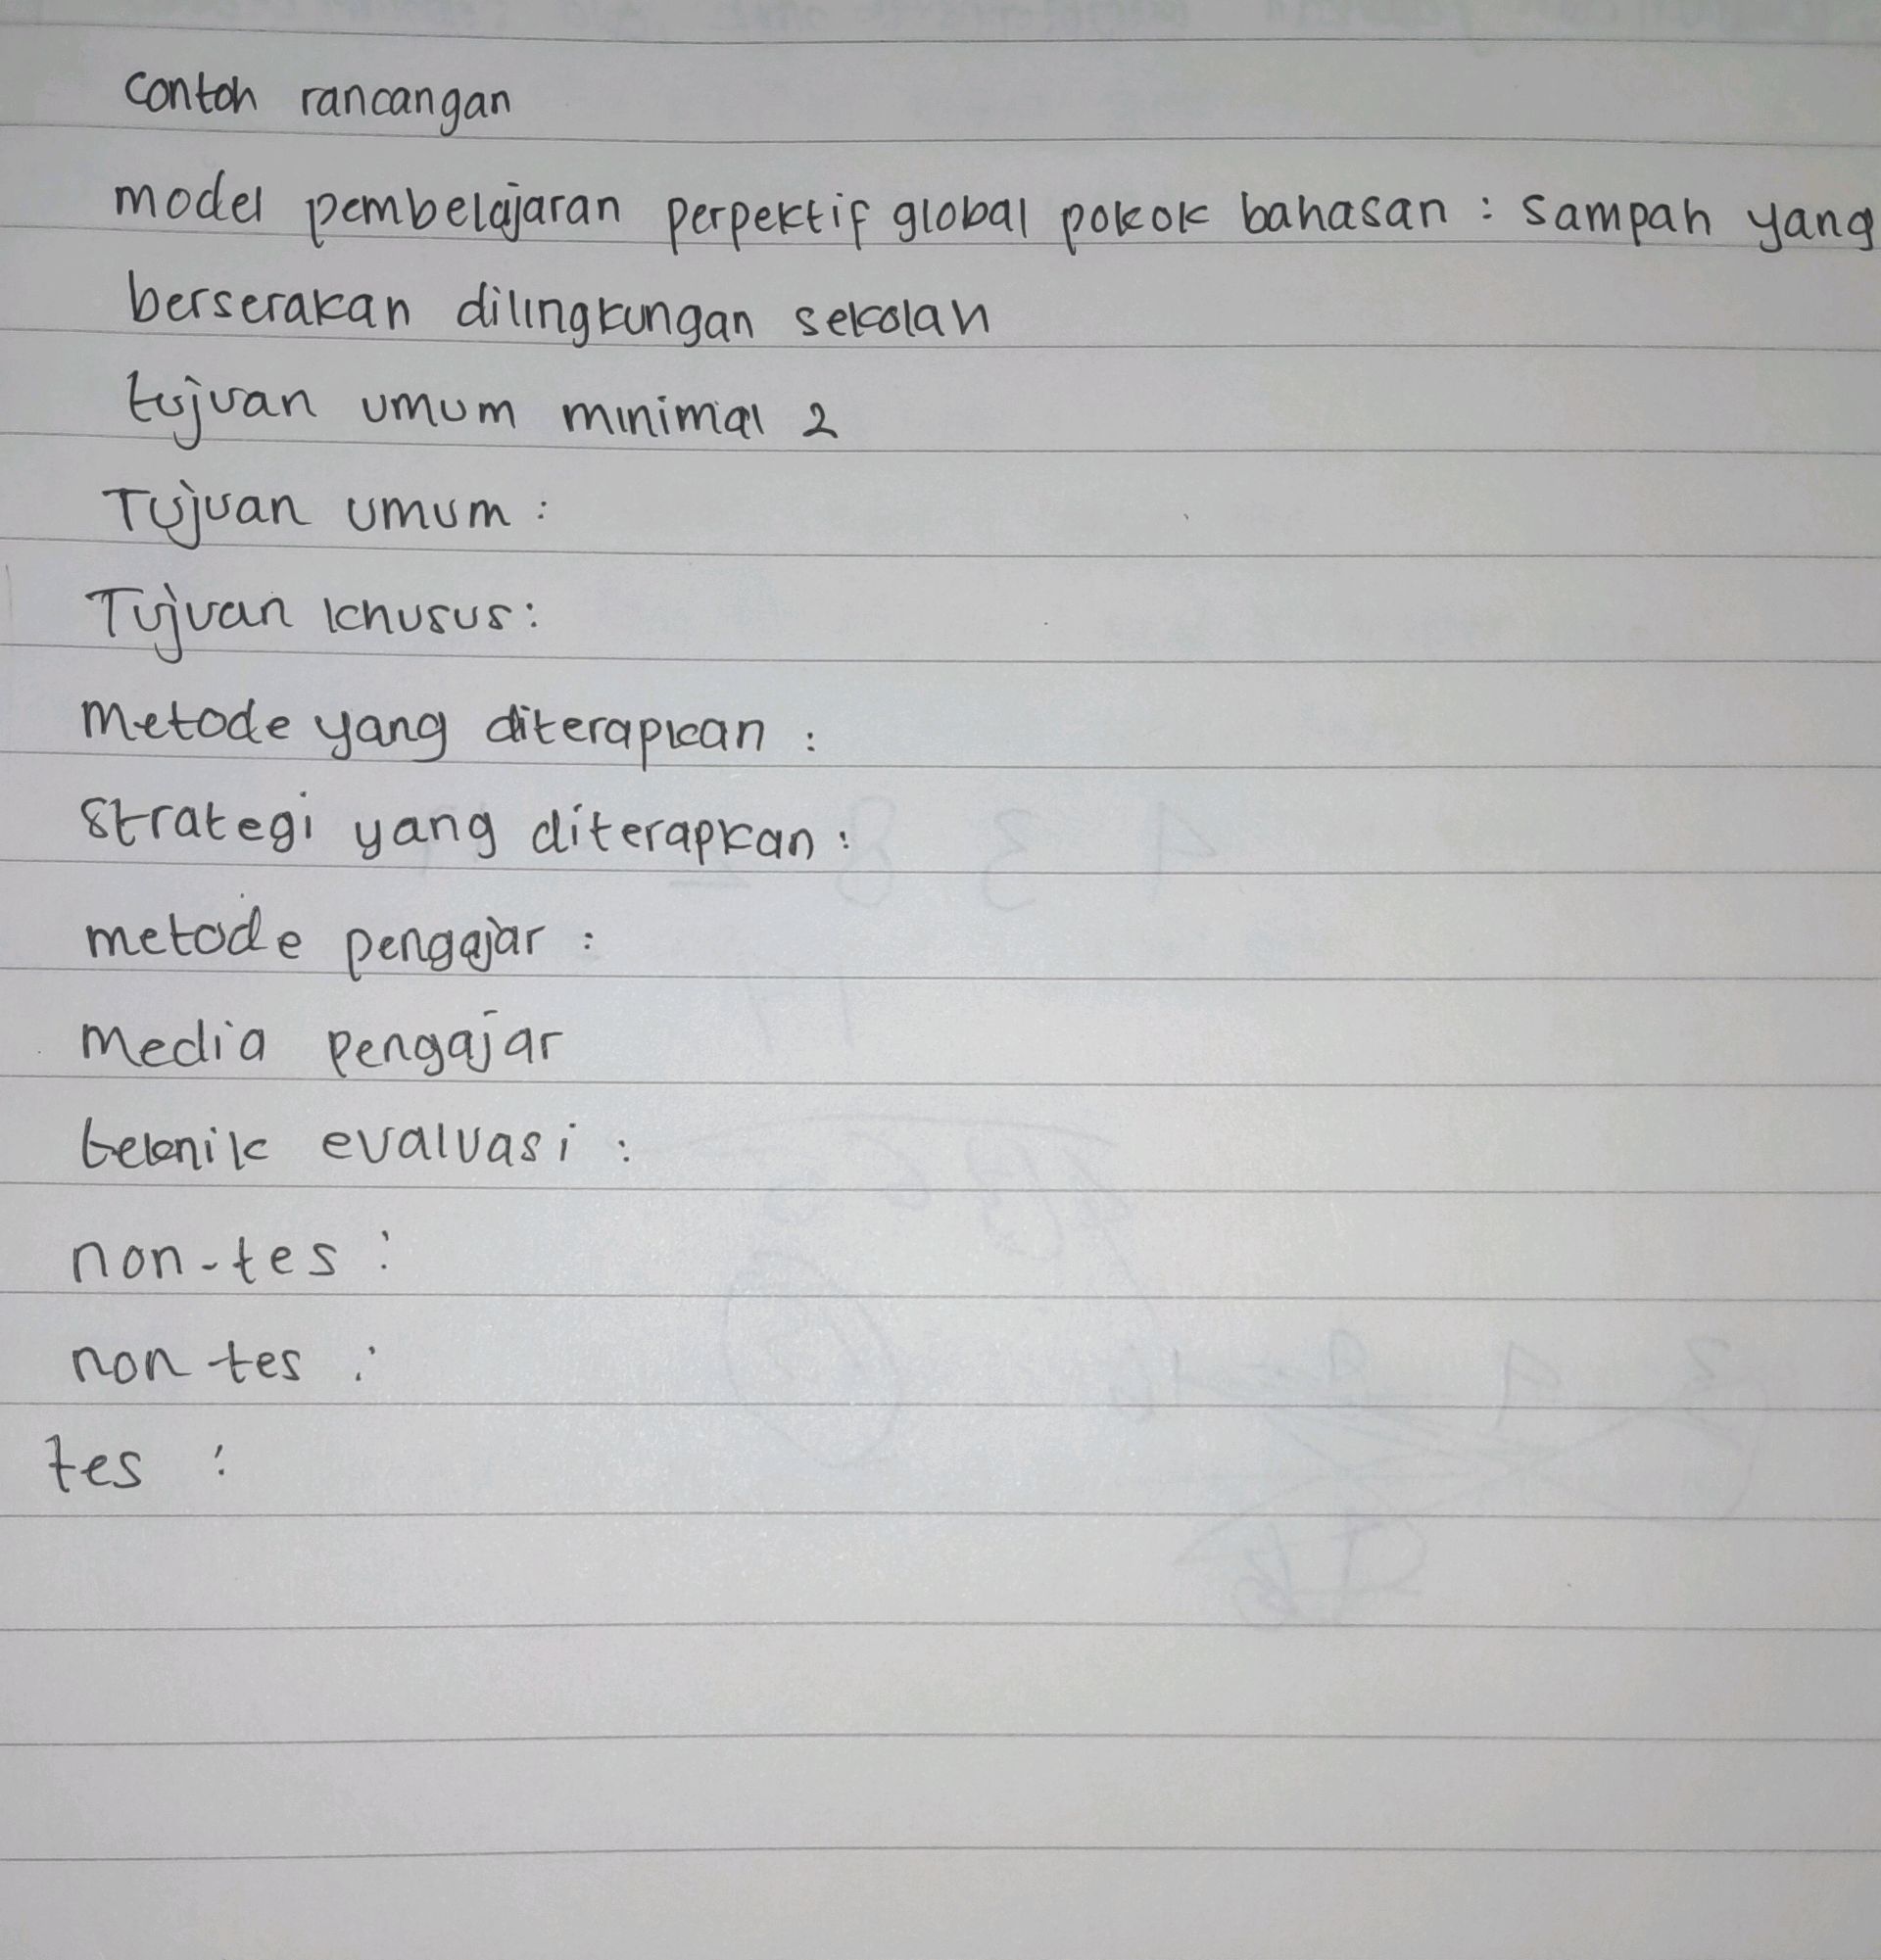 contoh rancangan
model pembelajaran perpektif global pokok bahasan : sampah yang
berserakan dilingkungan sekolah
tujuan umum minimal 2
Tujuan umum :
Tujuan khusus :
Metode yang diterapkan :
Strategi yang diterapkan :
metode pengajar :
Media pengajar
teknik evaluasi :
non-tes :
non tes :
tes :